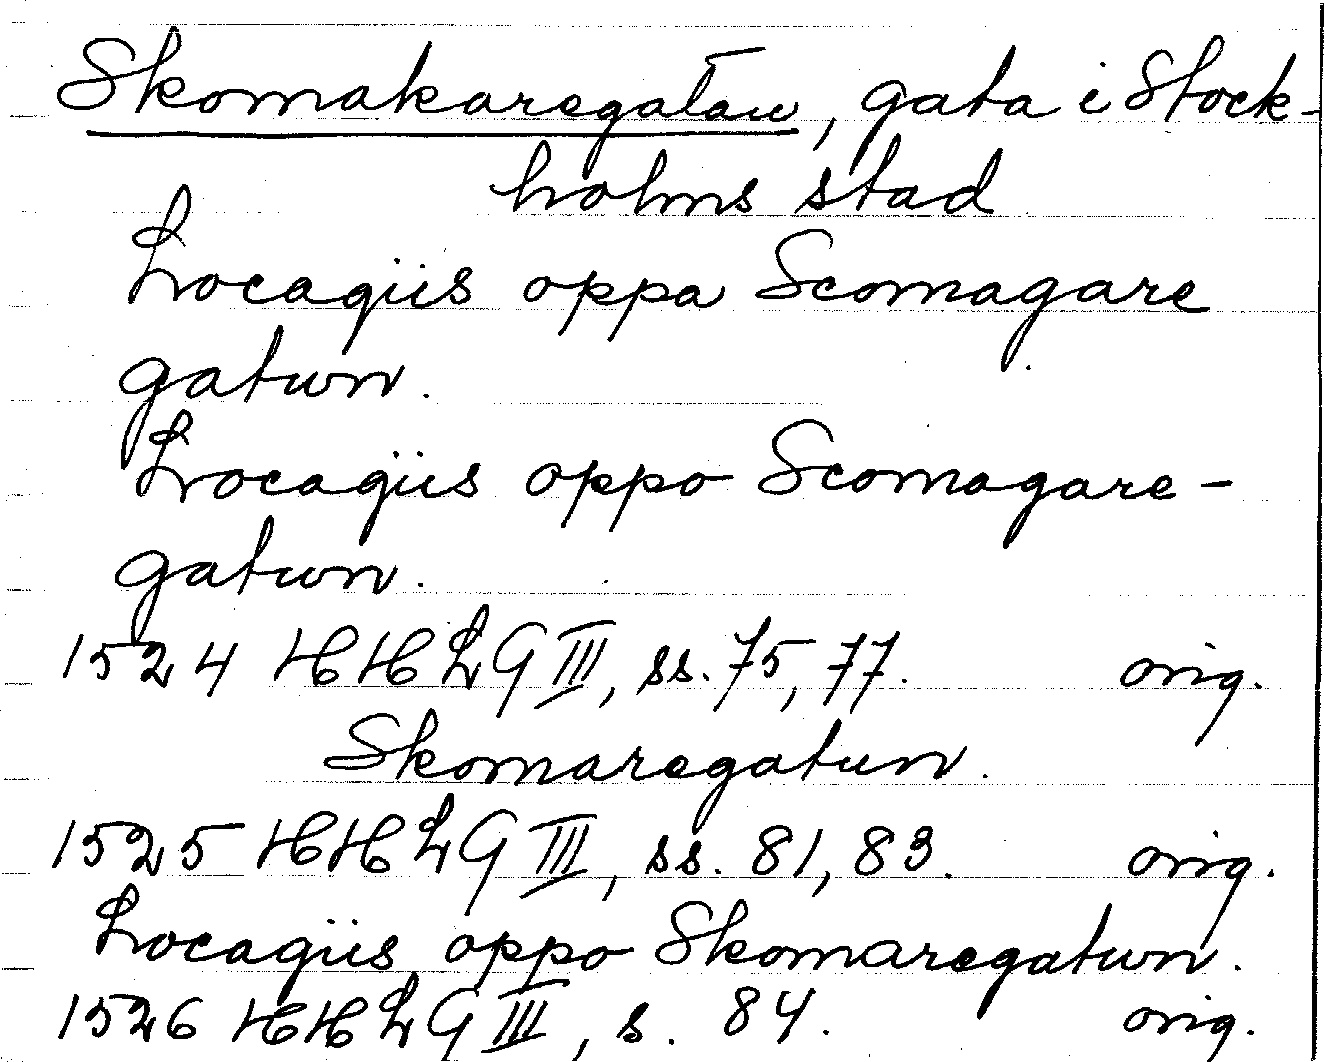 Skomakaregatan, gata i Stock-
holms stad
Locagiis oppa Scomagare
gatun.
Locagiis oppo Scomagare-
gatun.
1524 HHLG III, ss. 75, 77. orig.
Skomaregatun.
1525 HHLG III, ss. 81, 83. orig.
Locagiis oppo Skomaregatun.
1526 HHLG III, s. 84. orig.